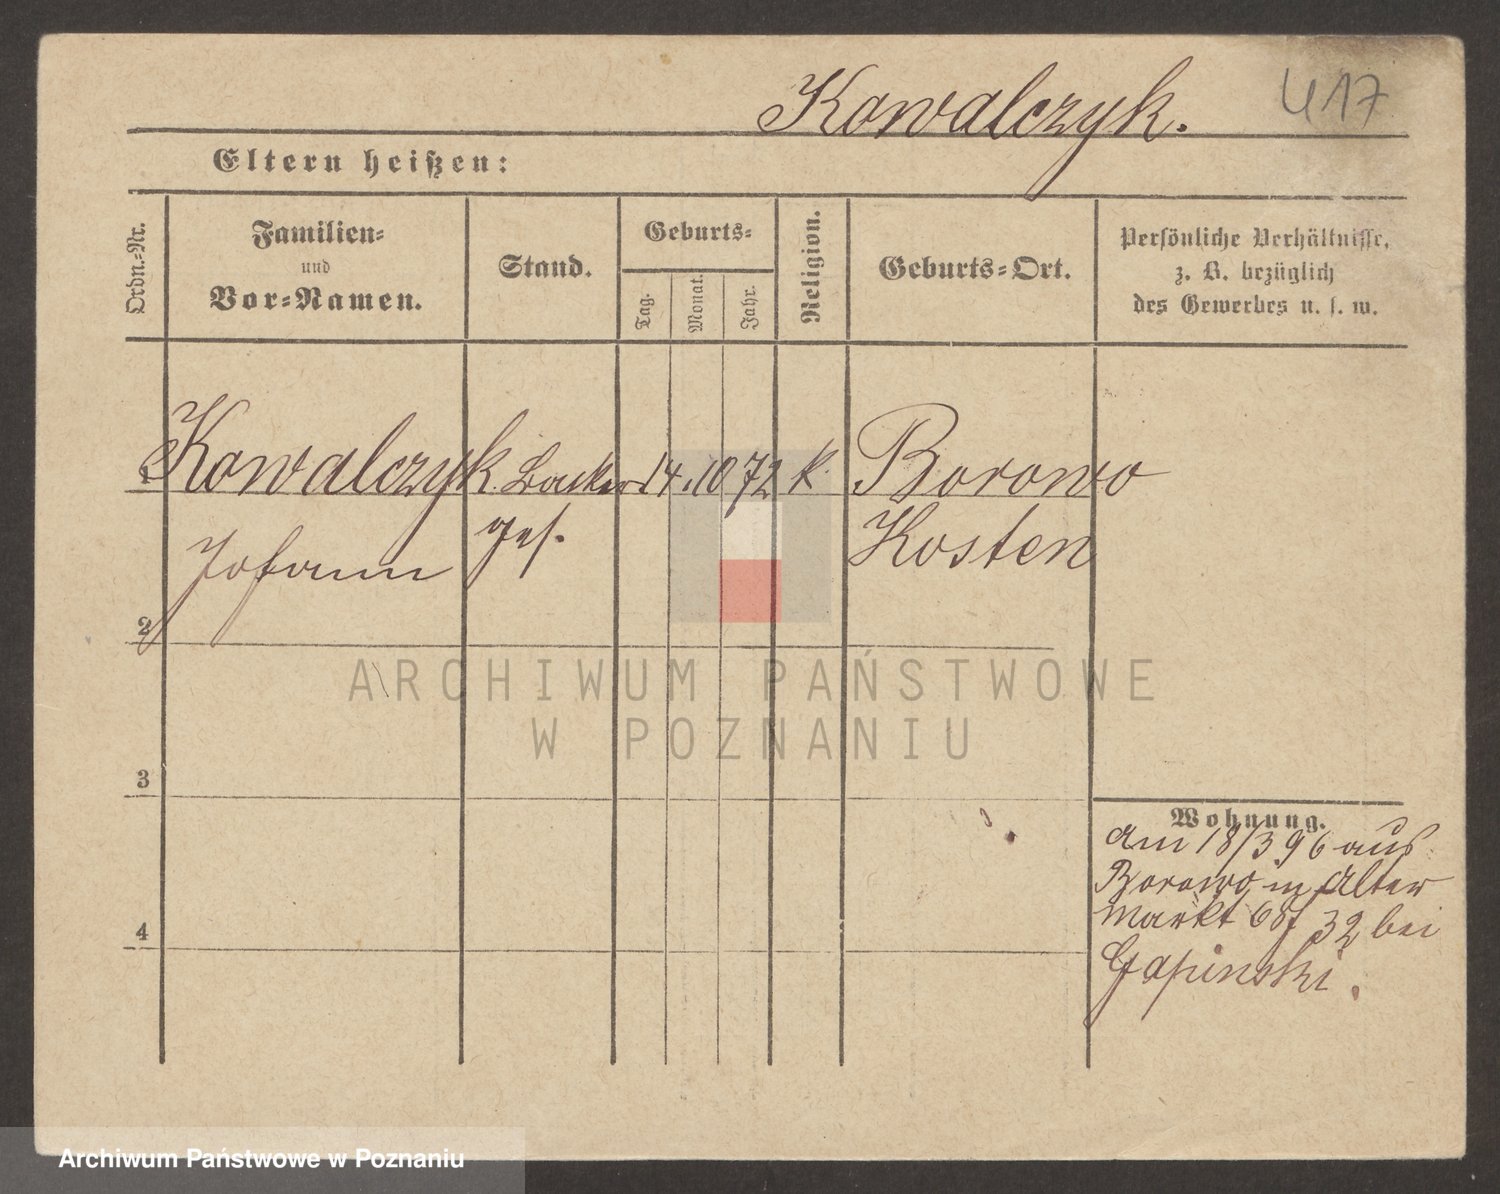 Kowalczyk.
417
Eltern heißen:
Ordn.-Nr.
Familien-
und
Vor-Namen.
Stand.
Geburts-
Tag.
Monat.
Jahr.
Religion.
Geburts-Ort.
Persönliche Verhältnisse,
z. B. bezüglich
des Gewerbes u. s. w.
1 Kowalczyk Bäcker 14. 10 72 k. Borowo
Johann ges. Kosten
2
ARCHIWUM PAŃSTWOWE
W POZNANIU
3
Wohnung.
am 18/3 96 aus
Borowo in Alter
Markt 32 bei
4
Archiwum Państwowe w Poznaniu